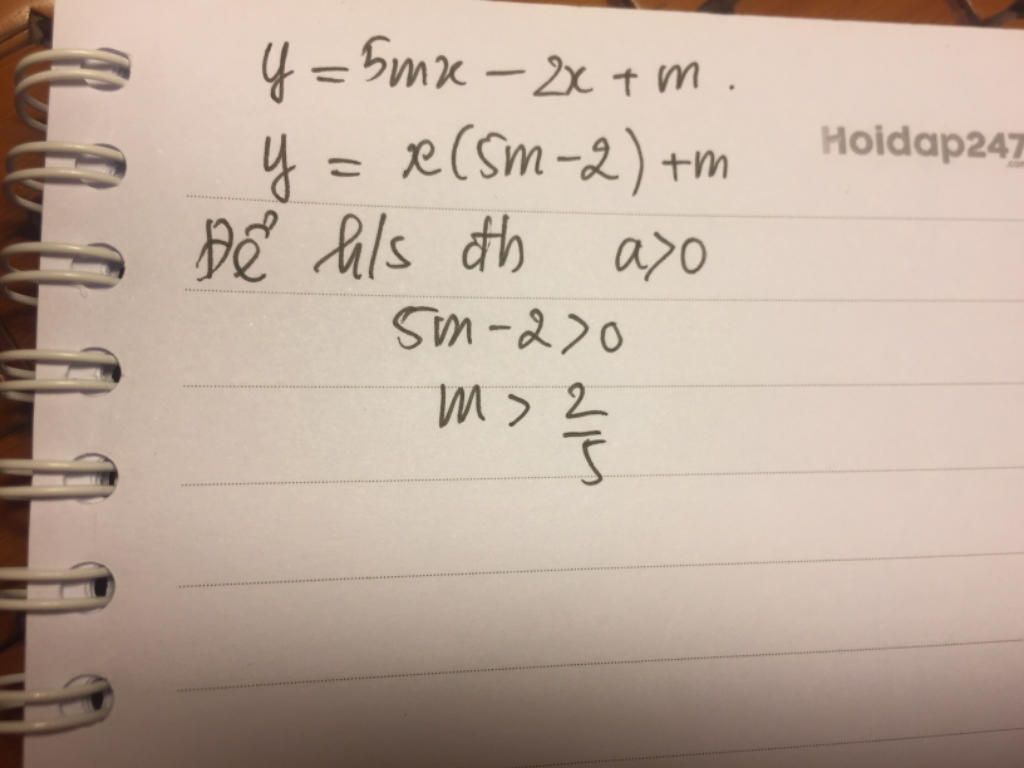 y = 5mx - 2x + m.
y = x(5m-2) + m
Hoidap247
.com
Để h/s đb a>0
5m-2>0
m > 2/5